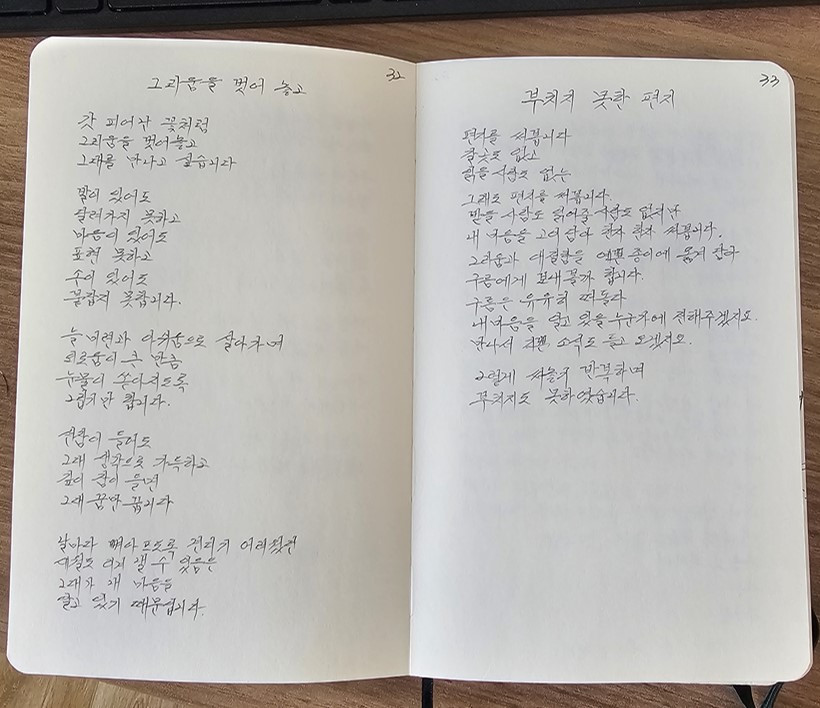 32
그리움을 벗어 놓고
갓 피어난 꽃처럼
그리움을 벗어놓고
그대를 만나고 싶습니다
발이 있어도
달려가지 못하고
마음이 있어도
표현 못하고
손이 있어도
붙잡지 못합니다.
늘 미련과 아쉬움으로 살아가며
외로움이 큰 만큼
눈물이 쏟아지도록
그립기만 합니다.
선잠이 들어도
그대 생각으로 가득하고
깊이 잠이 들면
그대 꿈만 꿉니다
날마다 뼈아프도록 견디기 어려웠던
세월도 이겨 낼 수 있음은
그대가 내 마음을
알고 있기 때문입니다.
33
부치지 못한 편지
편지를 써봅니다
갈곳도 없고
읽을 사람도 없는
그래도 편지를 써봅니다.
받을 사람도 읽어줄 사람도 없지만
내 마음을 고이 담아 한자 한자 써봅니다.
그리움과 애절함을 하얀 종이에 옮겨 담아
구름에게 보내볼까 합니다.
구름은 유유히 떠돌다
내마음을 알고 있을 누군가에 전해주겠지요.
만나서 그의 소식도 듣고 오겠지요.
그렇게 써놓기 반복하며
부치지도 못하였습니다.